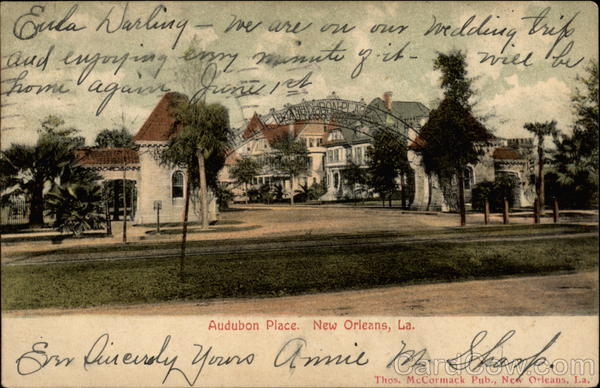 Eula Darling - We are on our Wedding trip
and enjoying every minute of it - will be
home again June 1st
AUDUBON PLACE
Audubon Place. New Orleans, La.
Ever Sincerely Yours Annie M. Sharp.
CardCow.com
Thos. McCormack Pub., New Orleans, La.